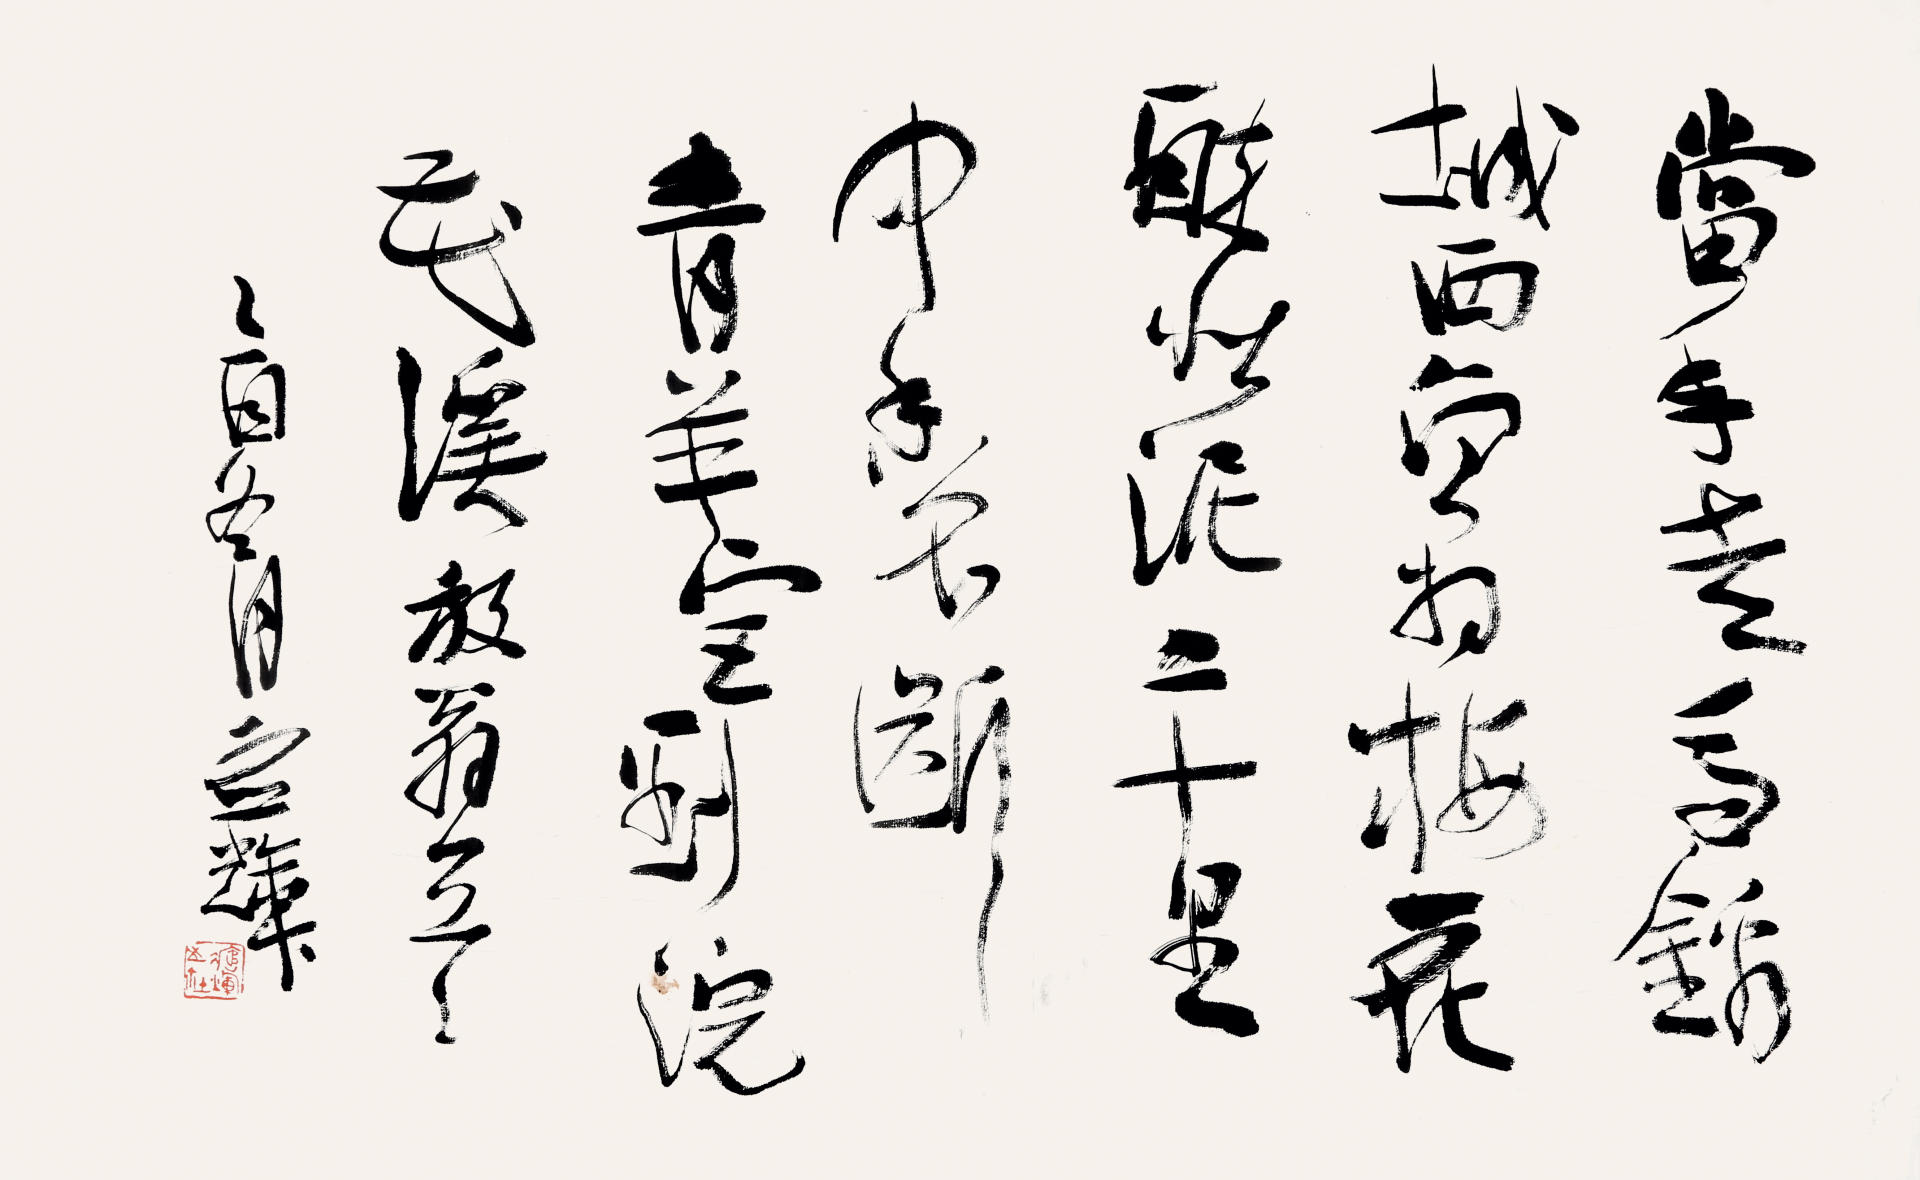 當年走馬錦
城西曾為梅花
醉似泥二十里
中香不斷
青羊宮到浣
花溪放翁
乙酉冬月應輝